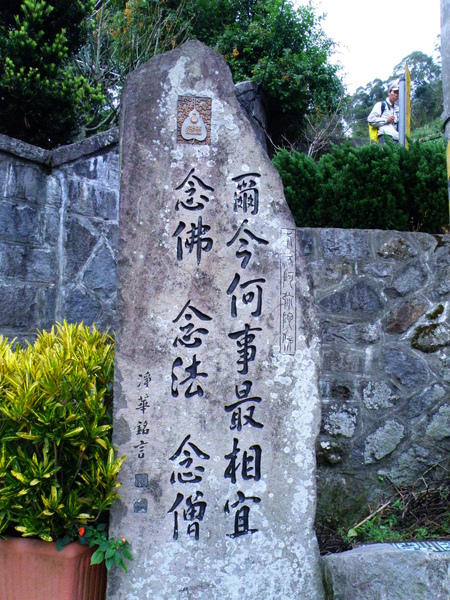 爾今何事最相宜
念佛 念法 念僧
淨華銘言